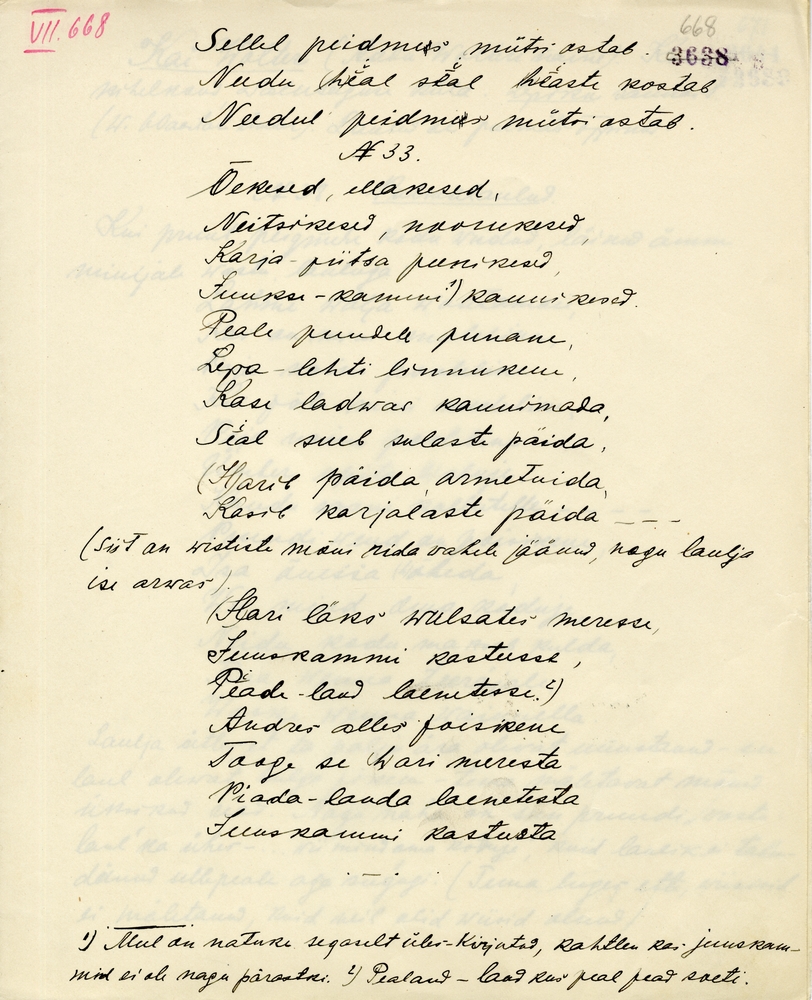 VII. 668
668
3638
Sellel peidmes mütsi ostab.
Needu hiäl siäl hiäste kostab
Needul peidmes mütsi ostab.
N 33.
Õekesed, ellakesed,
Neitsikesed, noorukesed,
Karja-piitsa peenikesed,
Juukse-kammi ¹) kaunikesed.
Peale puudele punane,
Lepa-lehti linnukene,
Kase ladwas kaunimada,
Siäl sueb sulaste päida,
Harib päida armetuida,
Kasib karjalaste päida _ _ _
(Siit on wististe mõni rida wahele jäänud, nagu laulja
ise arwas).
Hari läks wulsates meresse,
Juuskammi kastesse,
Piäde-laud laenetesse. ²)
Andres alles poisikene
Tooge se hari meresta
Piada-lauda laenetesta
Juuskammi kastesta
¹) Mul on natuke segaselt üles-kirjutud, kahtlen kas juuskam-
mid ei ole nagu pärastki. ²) Pealaud - laud kus peal pead soeti.